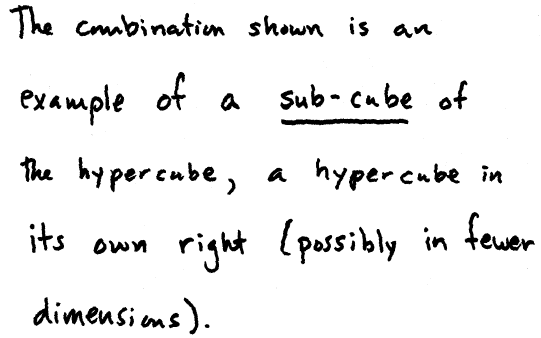 The combination shown is an
example of a sub-cube of
the hypercube, a hypercube in
its own right (possibly in fewer
dimensions).